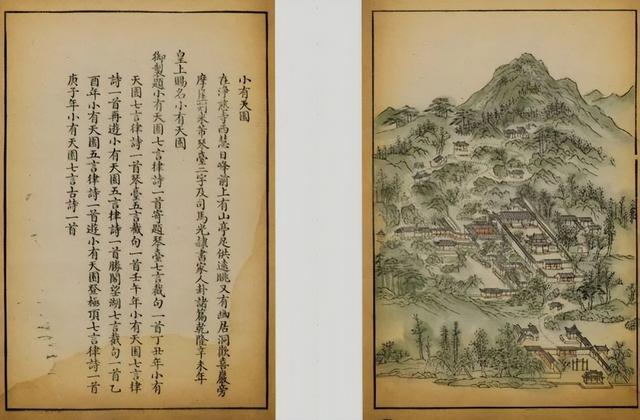 小有天園
在淨慈寺西慧日峰前上有山亭足供遠眺又有幽居洞歡喜巖旁
摩崖刻米芾琴臺二字及司馬光隸書家人卦諸篇乾隆辛未年
皇上賜名小有天園
御製題小有天園七言律詩一首寄題琴臺七言截句一首丁丑年小有
天園七言律詩一首琴臺五言截句一首壬午年小有天園七言律
詩一首再遊小有天園五言律詩一首勝閣望湖七言截句一首乙
酉年小有天園五言律詩一首遊小有天園登極頂七言律詩一首
庚子年小有天園七言古詩一首